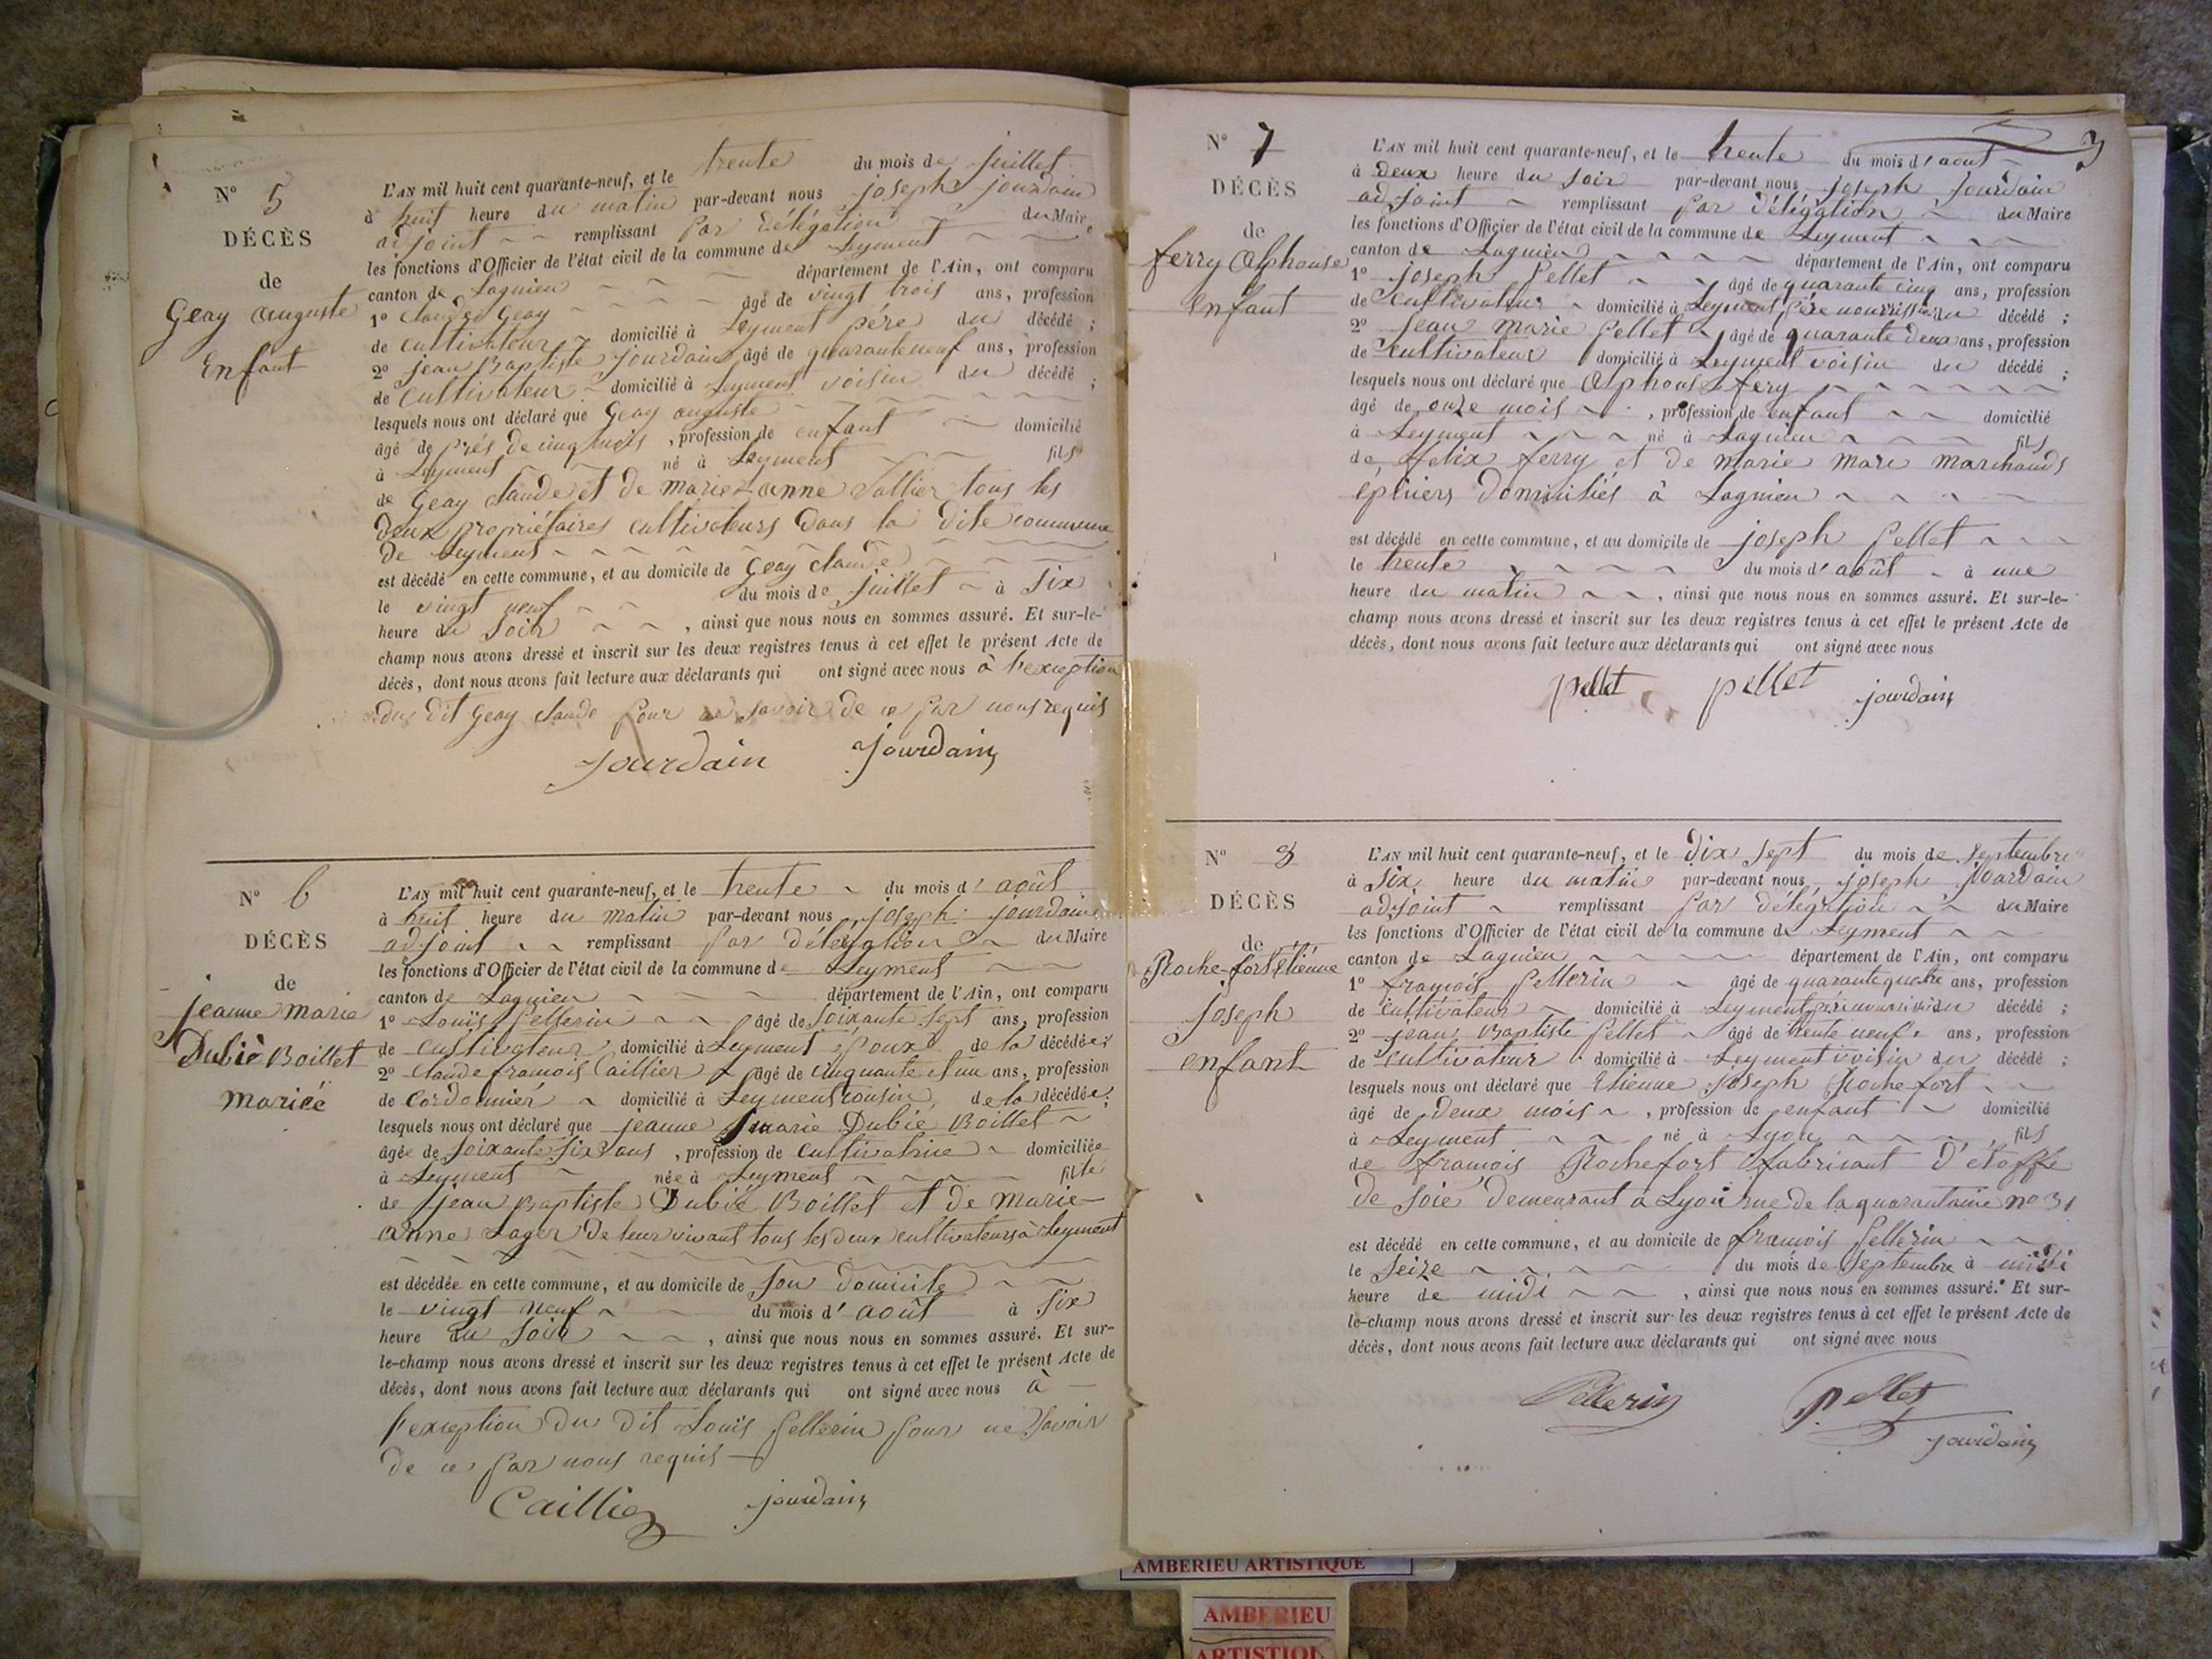 N° 5
DÉCÈS
de
Geay auguste
Enfant
L'AN mil huit cent quarante-neuf, et le trente du mois de juillet
à huit heure du matin par-devant nous joseph jourdain
adjoint ~ ~ remplissant par délégation ~ du Maire
les fonctions d'Officier de l'état civil de la commune de Leyment ~ ~
canton de Lagnieu ~ ~ ~ département de l'Ain, ont comparu
1° Claude Geay ~ ~ ~ âgé de vingt trois ans, profession
de cultivateur ~ domicilié à Leyment père du décédé ;
2° jean Baptiste jourdain âgé de quarante neuf ans, profession
de cultivateur ~ domicilié à Leyment voisin du décédé ;
lesquels nous ont déclaré que Geay auguste ~ ~ ~ ~
âgé de près de cinq mois , profession de enfant ~ domicilié
à Leyment ~ ~ né à Leyment ~ ~ fils
de Geay claude et de marie anne Vallier tous les
deux propriétaires cultivateurs dans la dite commune
de Leyment ~ ~ ~ ~ ~ ~
est décédé en cette commune, et au domicile de Geay claude ~ ~ ~
le vingt neuf ~ ~ du mois de juillet ~ à six
heure du soir ~ ~ , ainsi que nous nous en sommes assuré. Et sur-le-
champ nous avons dressé et inscrit sur les deux registres tenus à cet effet le présent Acte de
décès, dont nous avons fait lecture aux déclarants qui ont signé avec nous à l'exception
du dit Geay claude pour ne savoir de ce par nous requis
jourdain jourdain
N° 6
DÉCÈS
de
jeanne marie
Dubié Boillet
mariée
L'AN mil huit cent quarante-neuf, et le trente ~ du mois d'août
à huit heure du matin par-devant nous joseph jourdain
adjoint ~ ~ remplissant par délégation ~ du Maire
les fonctions d'Officier de l'état civil de la commune de Leyment ~ ~
canton de Lagnieu ~ ~ ~ département de l'Ain, ont comparu
1° Louis Pellerin ~ ~ âgé de soixante sept ans, profession
de cultivateur domicilié à Leyment époux de la décédée ;
2° Claude francois Caillier ~ âgé de cinquante et un ans, profession
de Cordonnier ~ domicilié à Leyment cousin de la décédée ;
lesquels nous ont déclaré que jeanne marie Dubié Boillet ~
âgée de soixante six ans , profession de cultivatrice ~ domiciliée
à Leyment ~ née à Leyment ~ ~ ~ fille
de jean Baptiste Dubié Boillet et de marie
anne Lager de leur vivant tous les deux cultivateurs à Leyment
est décédée en cette commune, et au domicile de son domicile ~ ~
le vingt neuf ~ du mois d'août à six
heure du soir ~ ~ , ainsi que nous nous en sommes assuré. Et sur-
le-champ nous avons dressé et inscrit sur les deux registres tenus à cet effet le présent Acte de
décès, dont nous avons fait lecture aux déclarants qui ont signé avec nous à
l'exception du dit Louis Pellerin pour ne savoir
de ce par nous requis
Caillier jourdain
3
N° 7
DÉCÈS
de
ferry Alphonse
enfant
L'AN mil huit cent quarante-neuf, et le trente du mois d'aout ~
à deux heure du soir par-devant nous joseph jourdain
adjoint ~ remplissant par délégation ~ du Maire
les fonctions d'Officier de l'état civil de la commune de Leyment ~ ~ ~
canton de Lagnieu ~ ~ ~ ~ département de l'Ain, ont comparu
1° joseph Pellet ~ ~ âgé de quarante cinq ans, profession
de cultivateur ~ domicilié à Leyment père nourrissier du décédé ;
2° jean marie Pellet ~ âgé de quarante deux ans, profession
de cultivateur domicilié à Leyment voisin du décédé ;
lesquels nous ont déclaré que Alphonse fery ~ ~ ~ ~ ~ ~
âgé de onze mois ~ , profession de enfant ~ ~ domicilié
à Leyment ~ ~ ~ né à Lagnieu ~ ~ ~ fils
de felix ferry et de marie mare marchands
epiciers domiciliés à Lagnieu ~ ~ ~ ~
est décédé en cette commune, et au domicile de joseph Pellet ~ ~ ~
le trente ~ ~ ~ ~ du mois d'août ~ à une
heure du matin ~ ~ , ainsi que nous nous en sommes assuré. Et sur-le-
champ nous avons dressé et inscrit sur les deux registres tenus à cet effet le présent Acte de
décès, dont nous avons fait lecture aux déclarants qui ont signé avec nous
pellet pellet jourdain
N° 8
DÉCÈS
de
Rochefort Etienne
Joseph
enfant
L'AN mil huit cent quarante-neuf, et le dix sept du mois de septembre
à six heure du matin par-devant nous joseph jourdain
adjoint ~ remplissant par délégation ~ ~ du Maire
les fonctions d'Officier de l'état civil de la commune de Leyment ~ ~
canton de Lagnieu ~ ~ ~ ~ département de l'Ain, ont comparu
1° francois Pellerin ~ âgé de quarante quatre ans, profession
de cultivateur ~ domicilié à Leyment père nourrissier du décédé ;
2° jean Baptiste Pellet ~ âgé de trente neuf ans, profession
de cultivateur domicilié à Leyment voisin du décédé ;
lesquels nous ont déclaré que Etienne joseph Rochefort ~ ~
âgé de deux mois ~ , profession de enfant ~ domicilié
à Leyment ~ ~ né à Lyon ~ ~ ~ ~ fils
de francois Rochefort fabricant d'étoffe
de soie demeurant à Lyon rue de la quarantaine no 31
est décédé en cette commune, et au domicile de francois Pellerin ~ ~
le seize ~ ~ ~ ~ du mois de septembre à midi
heure de midi ~ ~ , ainsi que nous nous en sommes assuré. Et sur-
le-champ nous avons dressé et inscrit sur les deux registres tenus à cet effet le présent Acte de
décès, dont nous avons fait lecture aux déclarants qui ont signé avec nous
Pellerin pellet
jourdain
AMBERIEU ARTISTIQUE
AMBERIEU
ARTISTIQU